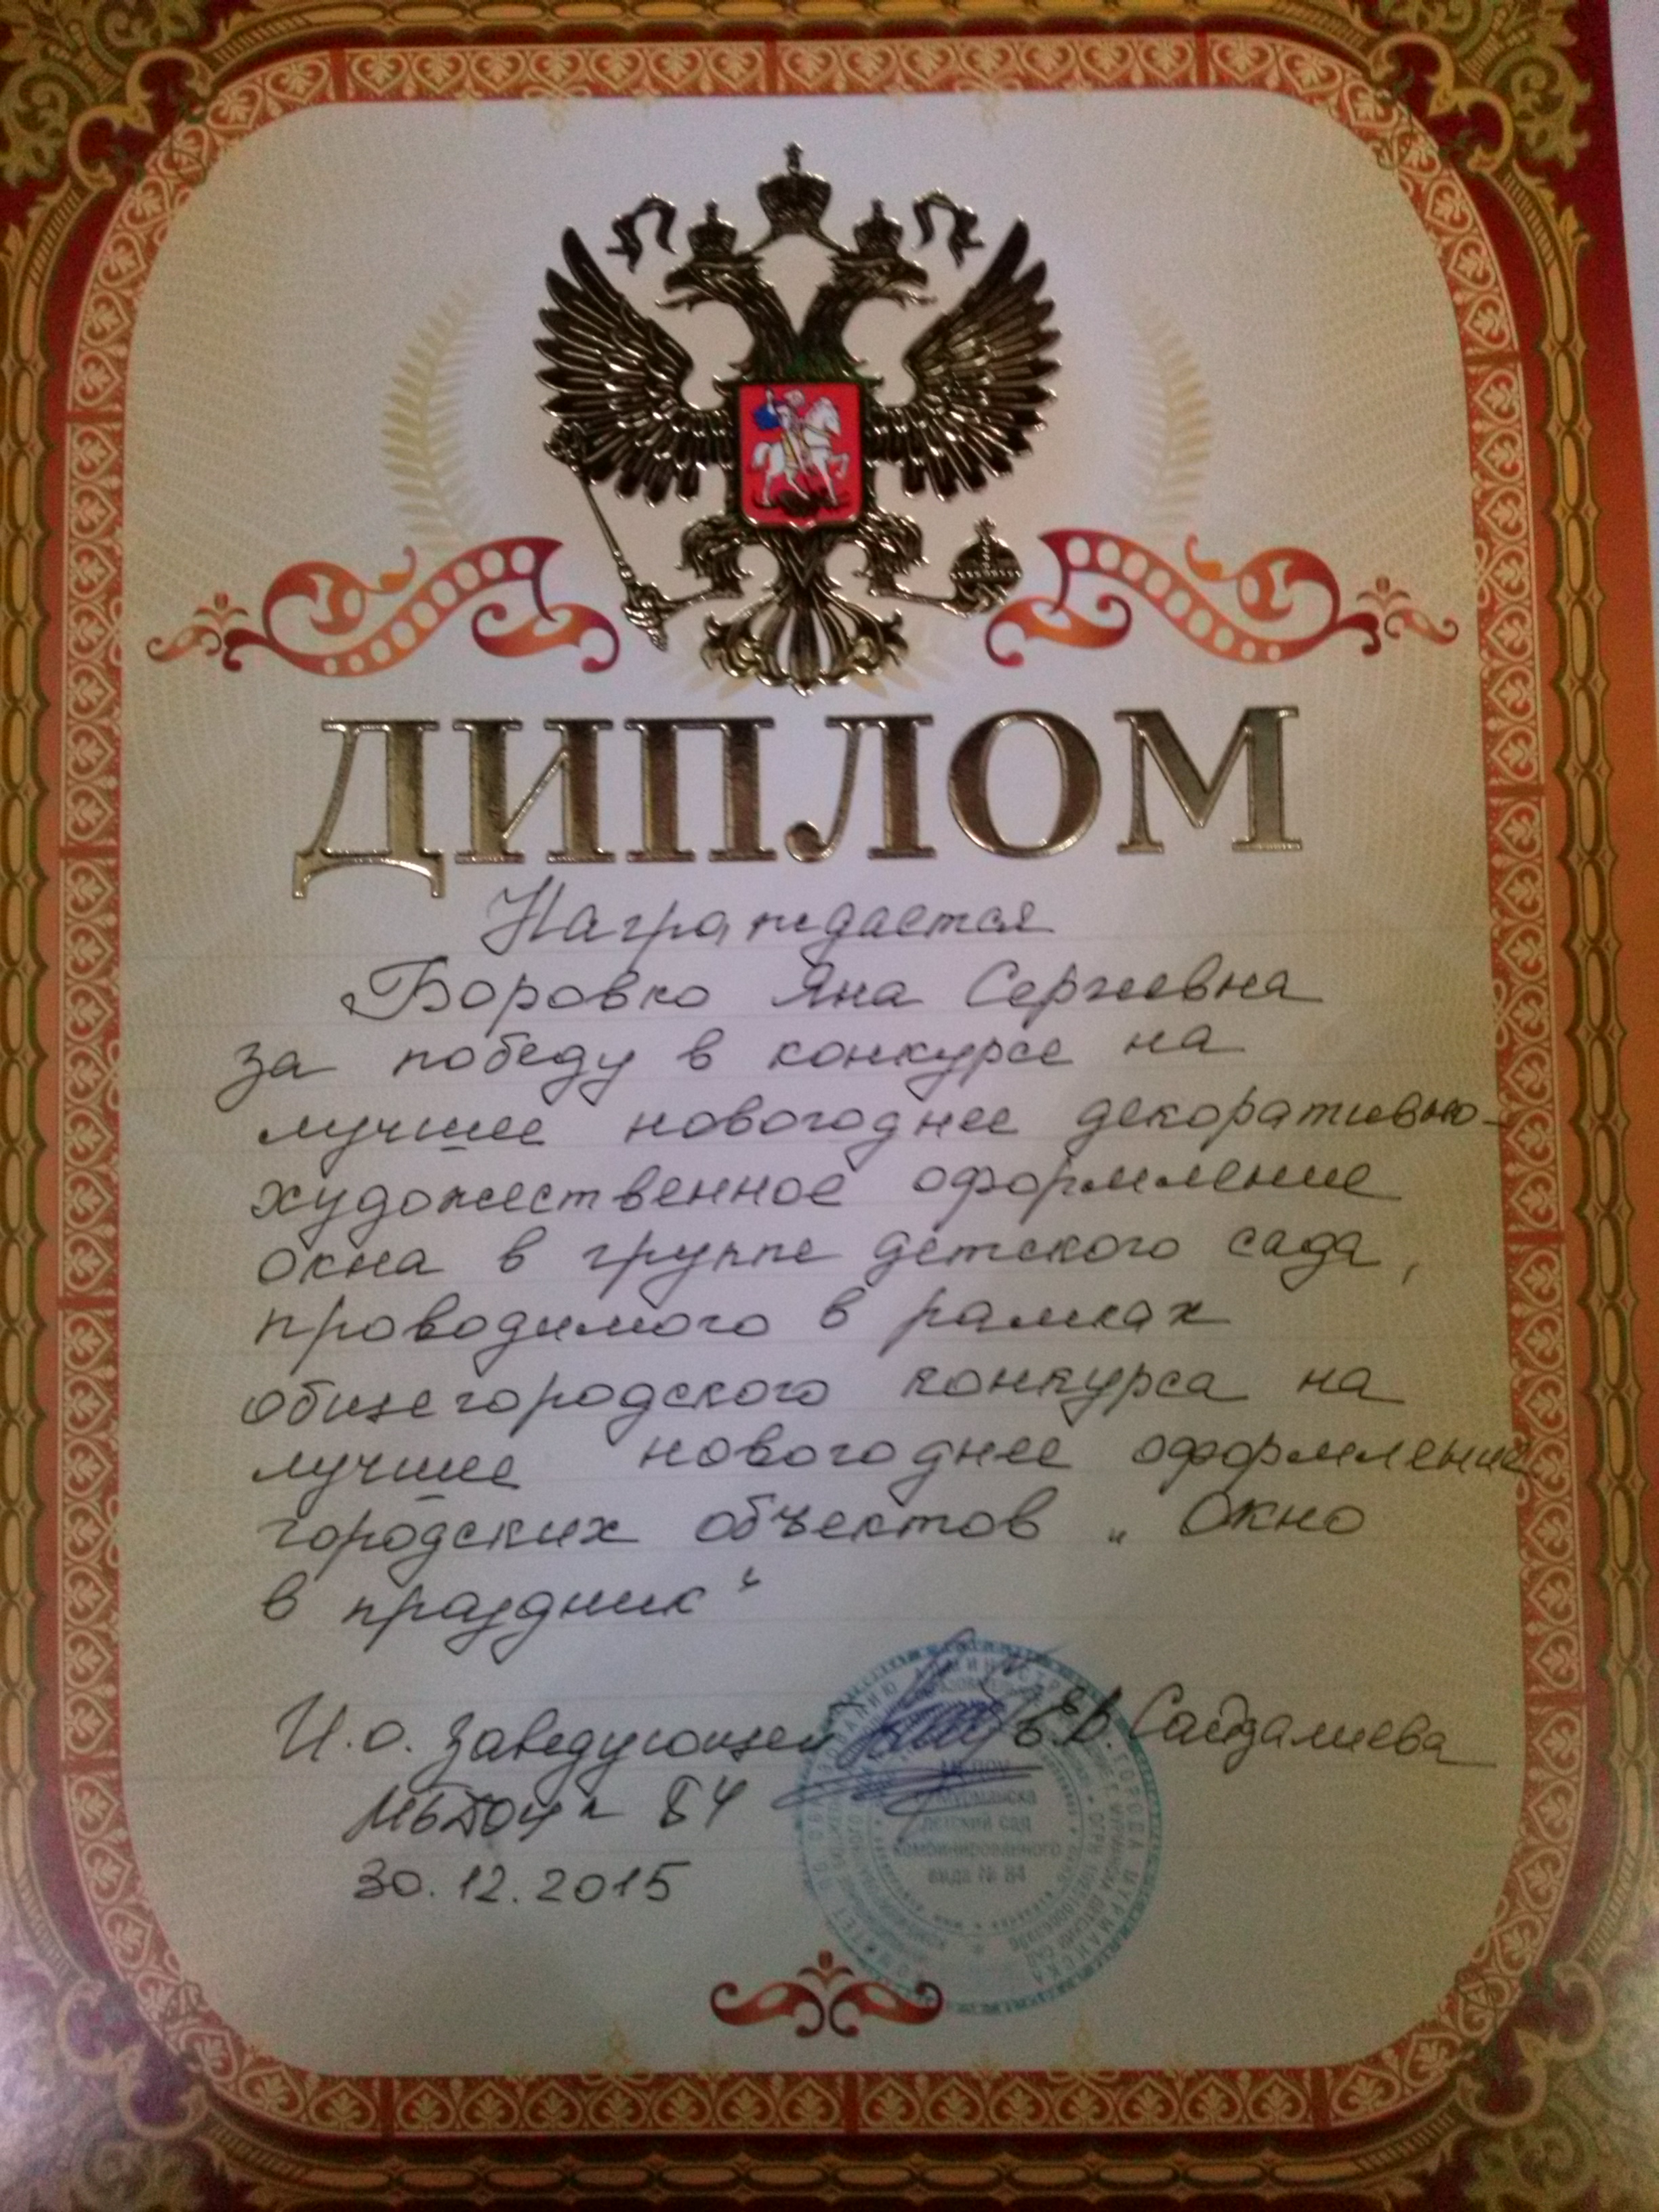 ДИПЛОМ
Награждается
Боровко Яна Сергеевна
за победу в конкурсе на
лучшее новогоднее декоративно-
художественное оформление
окна в группе детского сада,
проводимого в рамках
общегородского конкурса на
лучшее новогоднее оформление
городских объектов „Окно
в праздник“
И.о. заведующей Е.В. Сайдалиева
МБДОУ № 84
30.12.2015
МБДОУ
г. Мурманска
детский сад
комбинированного
вида № 84